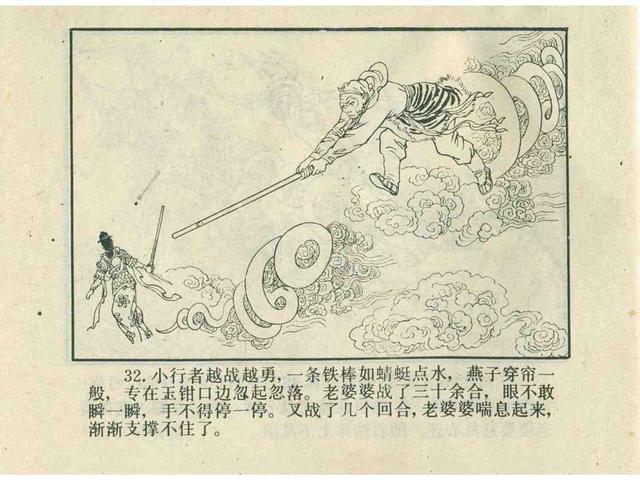 32. 小行者越战越勇，一条铁棒如蜻蜓点水，燕子穿帘一
般，专在玉钳口边忽起忽落。老婆婆战了三十余合，眼不敢
瞬一瞬，手不得停一停。又战了几个回合，老婆婆喘息起来，
渐渐支撑不住了。